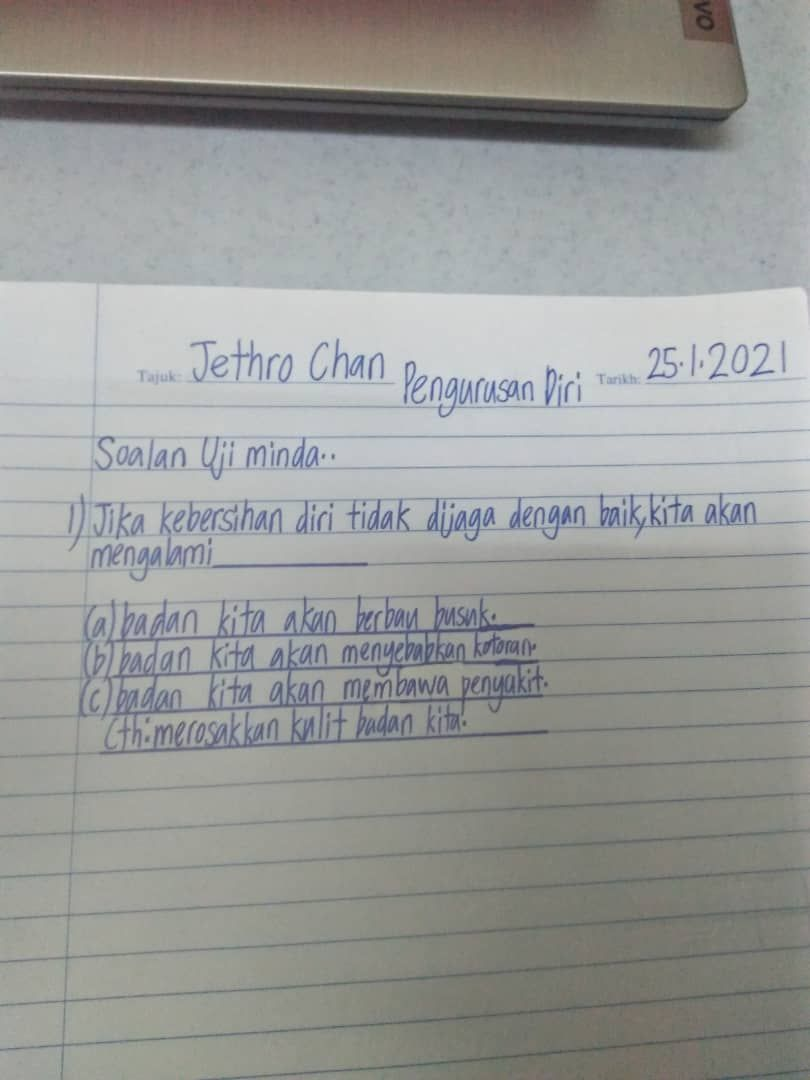 VO
Tajuk: Jethro Chan Pengurusan Diri Tarikh: 25.1.2021
Soalan Uji minda..
1) Jika kebersihan diri tidak dijaga dengan baik, kita akan
mengalami__________
(a) badan kita akan berbau busuk.
(b) badan kita akan menyebabkan kotoran.
(c) badan kita akan membawa penyakit.
Cth: merosakkan kulit badan kita.